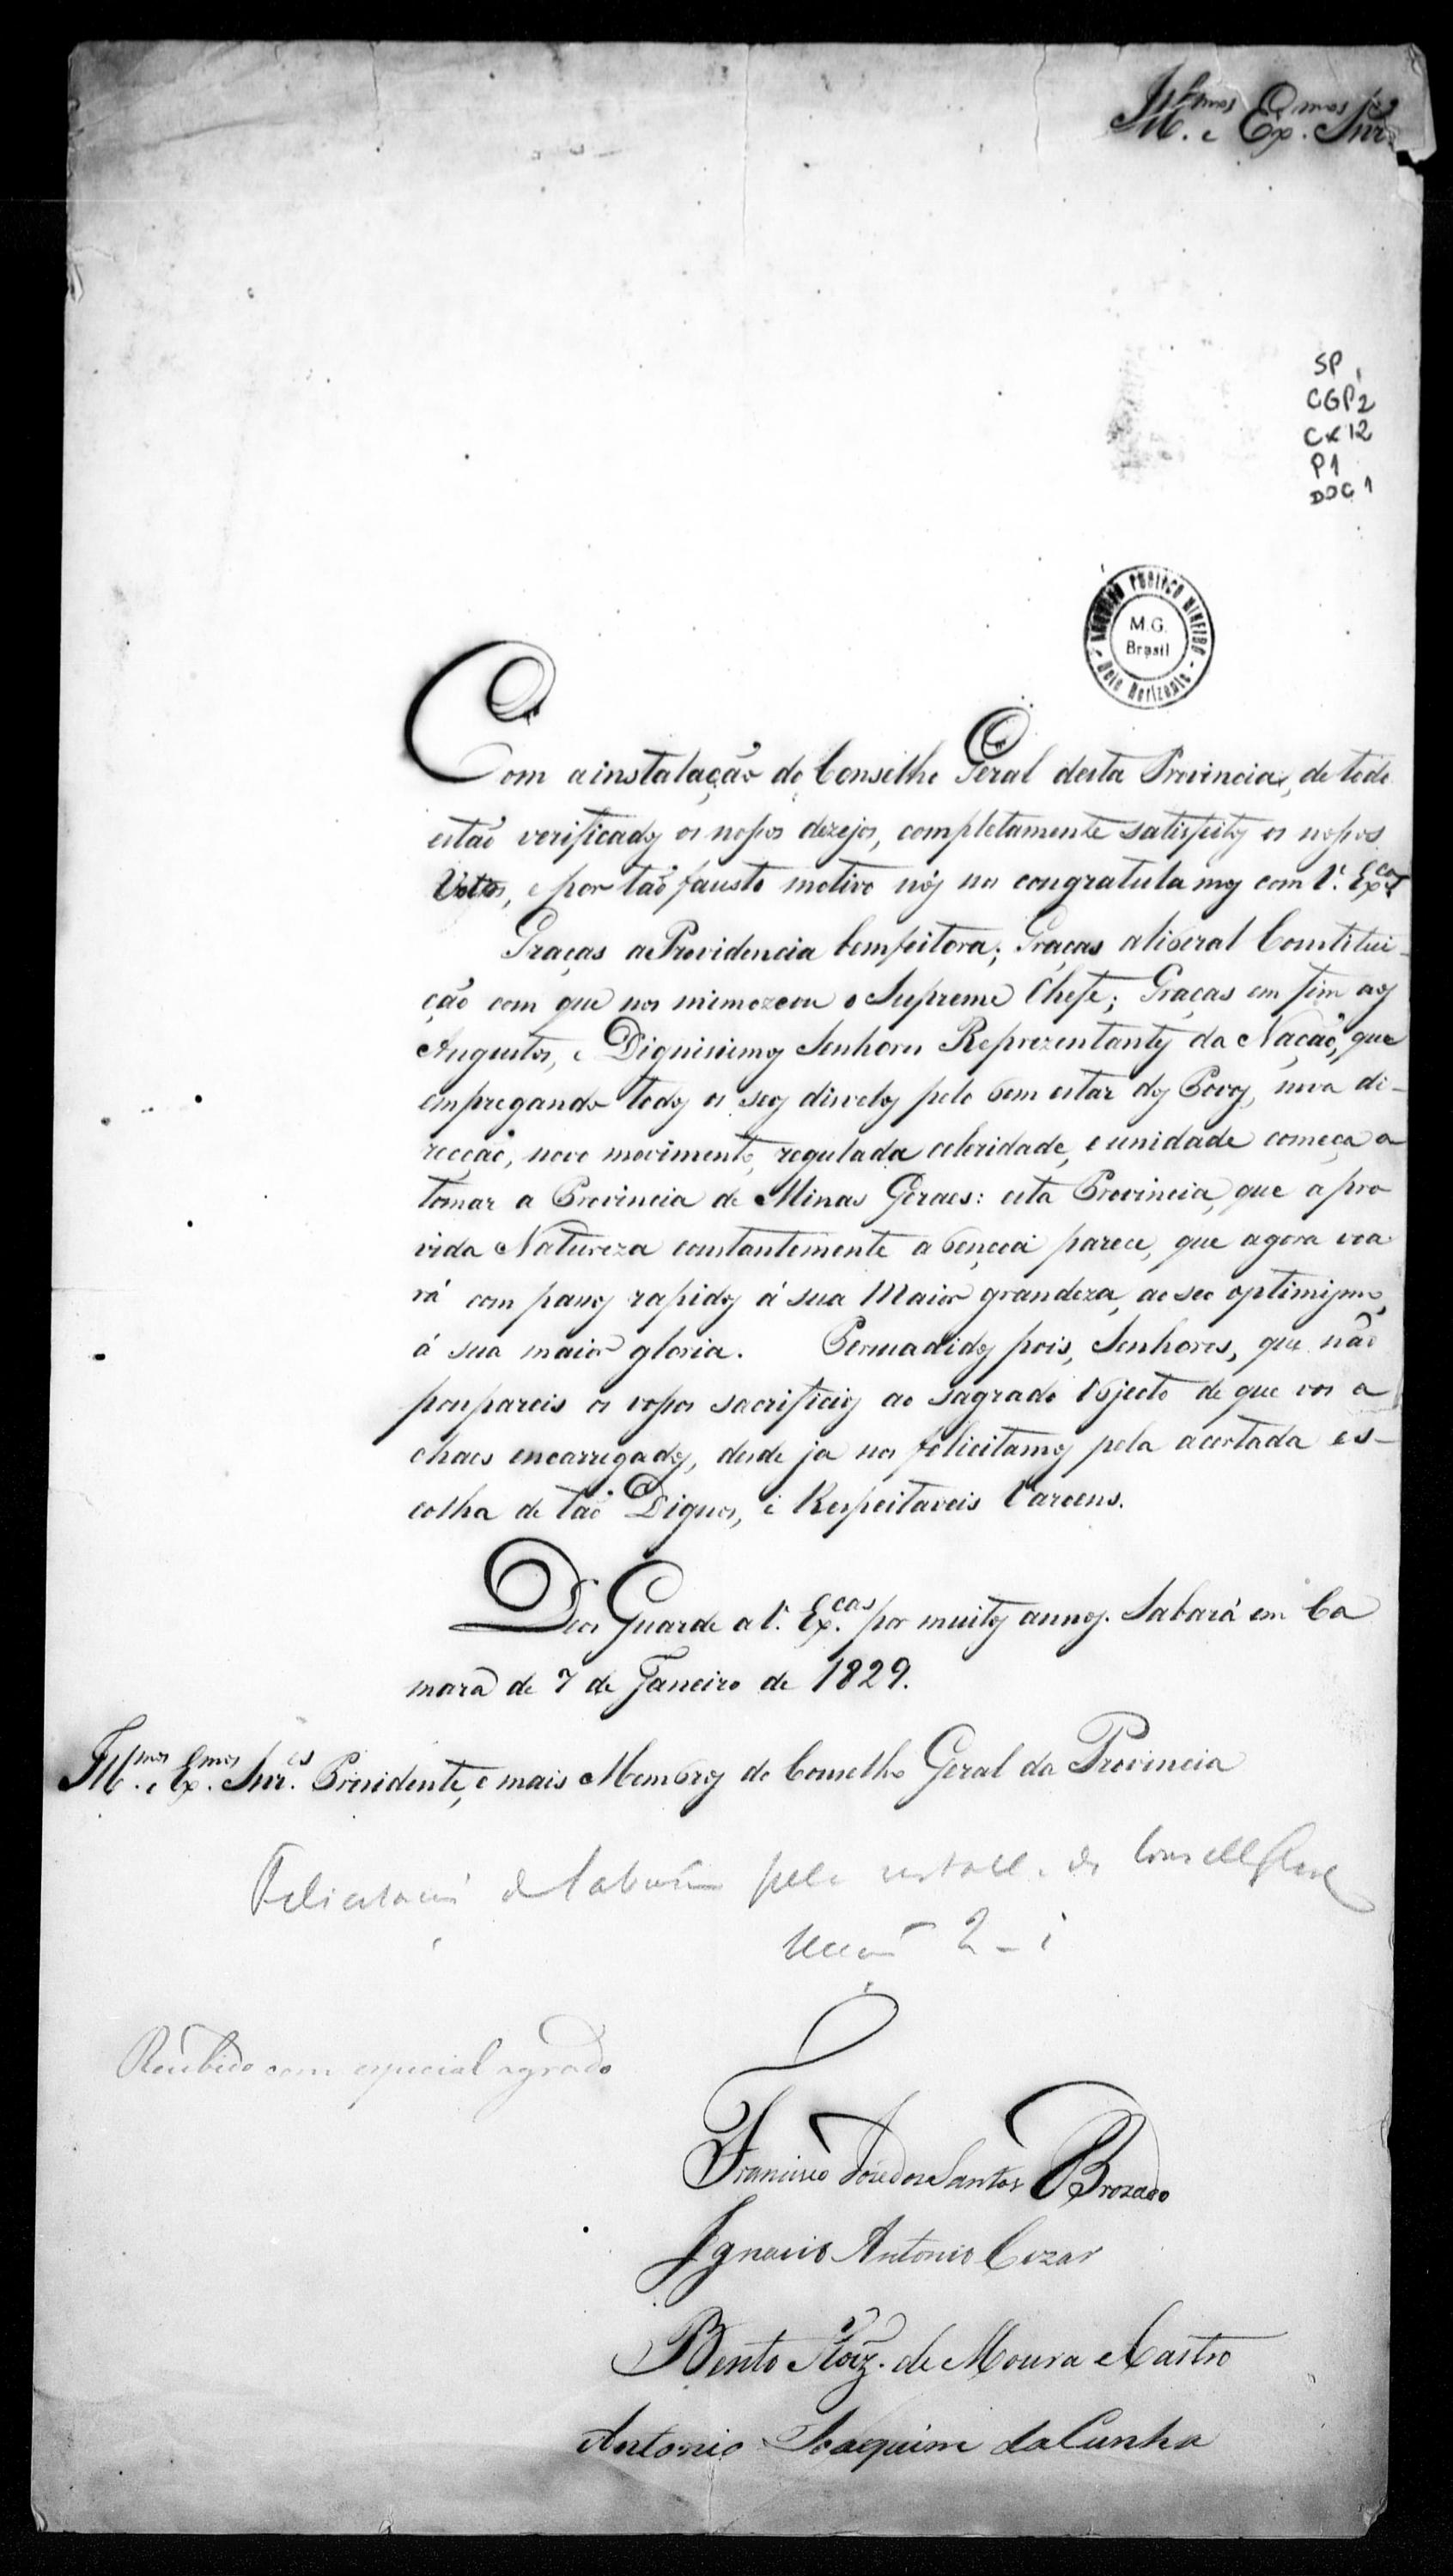 Ill.mos e Ex.mos Snr.es
SP
CGP2
CX12
P1
DOC 1
ARQUIVO PUBLICO MINEIRO
M.G.
Brasil
Belo Horizonte
Com a instalação do Conselho Geral desta Provincia, de todo
estão verificados os nossos dezejos, completamente satisfeitos os nossos
Votos, e por tão fausto motivo nós nos congratulamos com V. Ex.cas
Graças a Providencia bemfeitora; Graças a liberal Constitui-
ção com que nos mimozeou o Supremo Chefe; Graças em fim aos
Augustos, e Dignissimos Senhores Reprezentantes da Nação, que
empregando todos os seos disvelos pelo bem estar dos Povos, nova di-
recção, novo movimento, regulada celeridade, e unidade começa a
tomar a Provincia de Minas Geraes: esta Provincia, que a pro
vida Natureza constantemente abençoa parece, que agora voa
rá com passos rapidos á sua Maior grandeza, ao seo optimismo,
á sua maior gloria. Persuadidos pois, Senhores, que não
poupareis os vossos sacrificios ao sagrado Objecto de que vos a
chaes encarregados, desde ja nos felicitamos pela acertada es-
colha de tão Dignos, e Respeitaveis Varoens.
Deos Guarde a V. Ex.cas por muitos annos. Sabará em Ca
mara de 7 de Janeiro de 1829.
Ill.mos e Ex.mos Snr.es Prezidente, e mais Membros do Conselho Geral da Provincia
Felicitação de Sabará pela install. do Conselho Geral
2 - 1
Recebido com especial agrado
Francisco José dos Santos Brozado
Ignacio Antonio Cezar
Bento Roiz. de Moura e Castro
Antonio Joaquim da Cunha